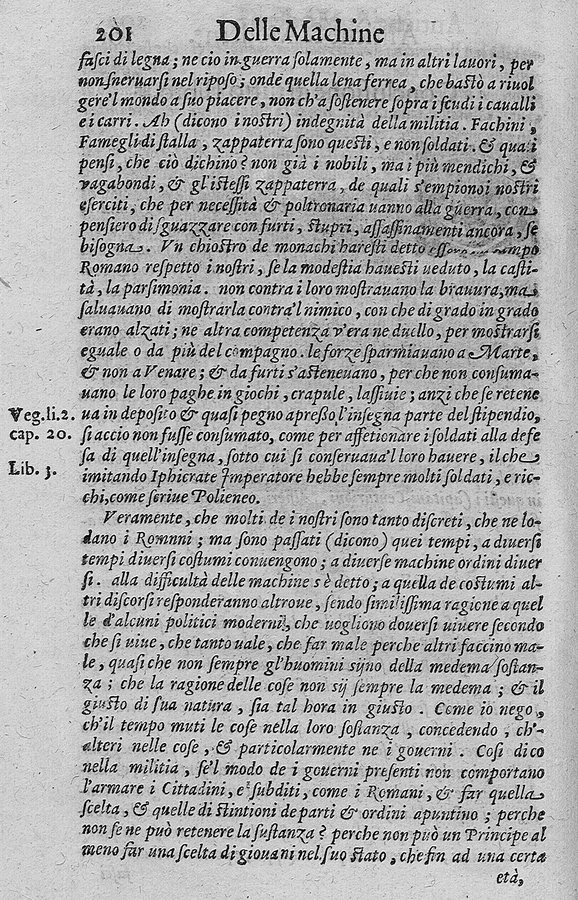 201 Delle Machine
fasci di legna; ne cio in guerra solamente, ma in altri lavori, per
non snervarsi nel riposo; onde quella lena ferrea, che bastò a rivol
gere'l mondo a suo piacere, non ch'a sostenere sopra i scudi i cavalli
e i carri. Ah (dicono i nostri) indegnità della militia. Fachini,
Famegli di stalla, zappaterra sono questi, e non soldati. & quai
pensi, che ciò dichino? non già i nobili, ma i più mendichi, &
vagabondi, & gl'istessi zappaterra, de quali s'empionoi nostri
eserciti, che per necessità & poltronaria uanno alla guerra, con
pensiero di sguazzare con furti, stupri, assassinamenti ancora, se
bisogna. Vn chiostro de monachi haresti detto campo
Romano respetto i nostri, se la modestia havesti veduto, la casti-
tà, la parsimonia. non contra i loro mostrauano la brauura, ma
saluauano di mostrarla contra'l nimico, con che di grado in grado
erano alzati; ne altra competenza v'era ne duello, per mostrarsi
eguale o da più del compagno. le forze sparmiauano a Marte,
& non a Venare; & da furti s'asteneuano, per che non consuma-
uano le loro paghe in giochi, crapule, lasciuie; anzi che se retene
Veg. li. 2. ua in deposito & quasi pegno apresso l'insegna parte del stipendio,
cap. 20. si accio non fusse consumato, come per affetionare i soldati alla defe
sa di quell'insegna, sotto cui si conseruaua'l loro hauere, il che
Lib. 3. imitando Iphicrate Imperatore hebbe sempre molti soldati, e ric-
chi, come scriue Polieneo.
Veramente, che molti de i nostri sono tanto discreti, che ne lo-
dano i Romnni; ma sono passati (dicono) quei tempi, a diversi
tempi diversi costumi convengono; a diverse machine ordini diver
si. alla difficultà delle machine s'è detto; a quella de costumi al-
tri discorsi responderanno altroue, sendo similissima ragione a quel
le d'alcuni politici moderni, che vogliono doversi vivere secondo
che si vive, che tanto vale, che far male perche altri faccino ma-
le, quasi che non sempre gl'huomini sijno della medema sostan-
za; che la ragione delle cose non sij sempre la medema; & il
giusto di sua natura, sia tal hora in giusto. Come io nego,
ch'il tempo muti le cose nella loro sostanza, concedendo, ch'-
alteri nelle cose, & particolarmente ne i governi. Così dico
nella militia, se'l modo de i governi presenti non comportano
l'armare i Cittadini, e' subditi, come i Romani, & far quella
scelta, & quelle distintioni de parti & ordini apuntino; perche
non se ne può retenere la sustanza? perche non può un Principe al
meno far una scelta di giovani nel suo stato, che fin ad una certa
età,